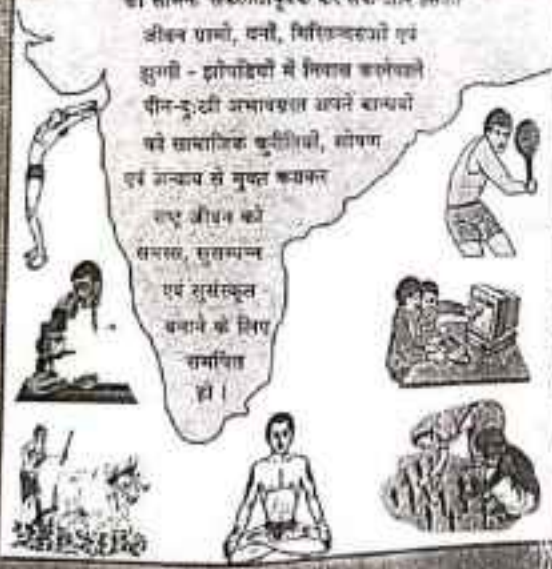 का सामना सफलतापूर्वक कर सके और जिसका
जीवन ग्रामों, वनों, गिरिकन्दराओं एवं
झुग्गी - झोंपडियों में निवास करनेवाले
दीन-दुःखी अभावग्रस्त अपने बान्धवों
को सामाजिक कुरीतियों, शोषण
एवं अन्याय से मुक्त कराकर
राष्ट्र जीवन को
समरस, सुसम्पन्न
एवं सुसंस्कृत
बनाने के लिए
समर्पित
हो।